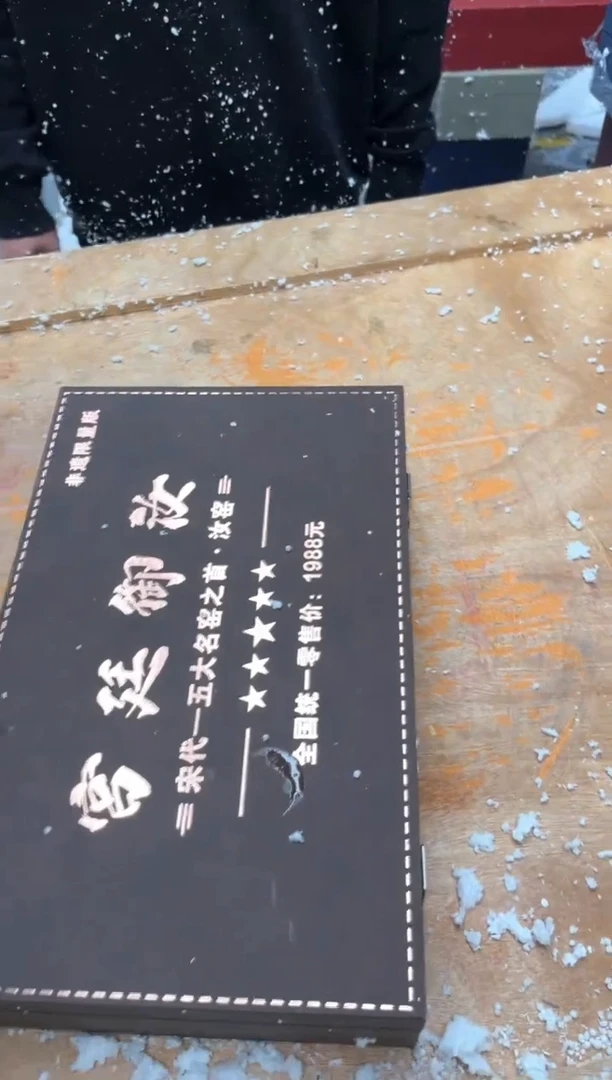 非遗限量版
宫廷御汝
宋代一五大名窑之首·汝窑
★★★★★
全国统一零售价：1988元